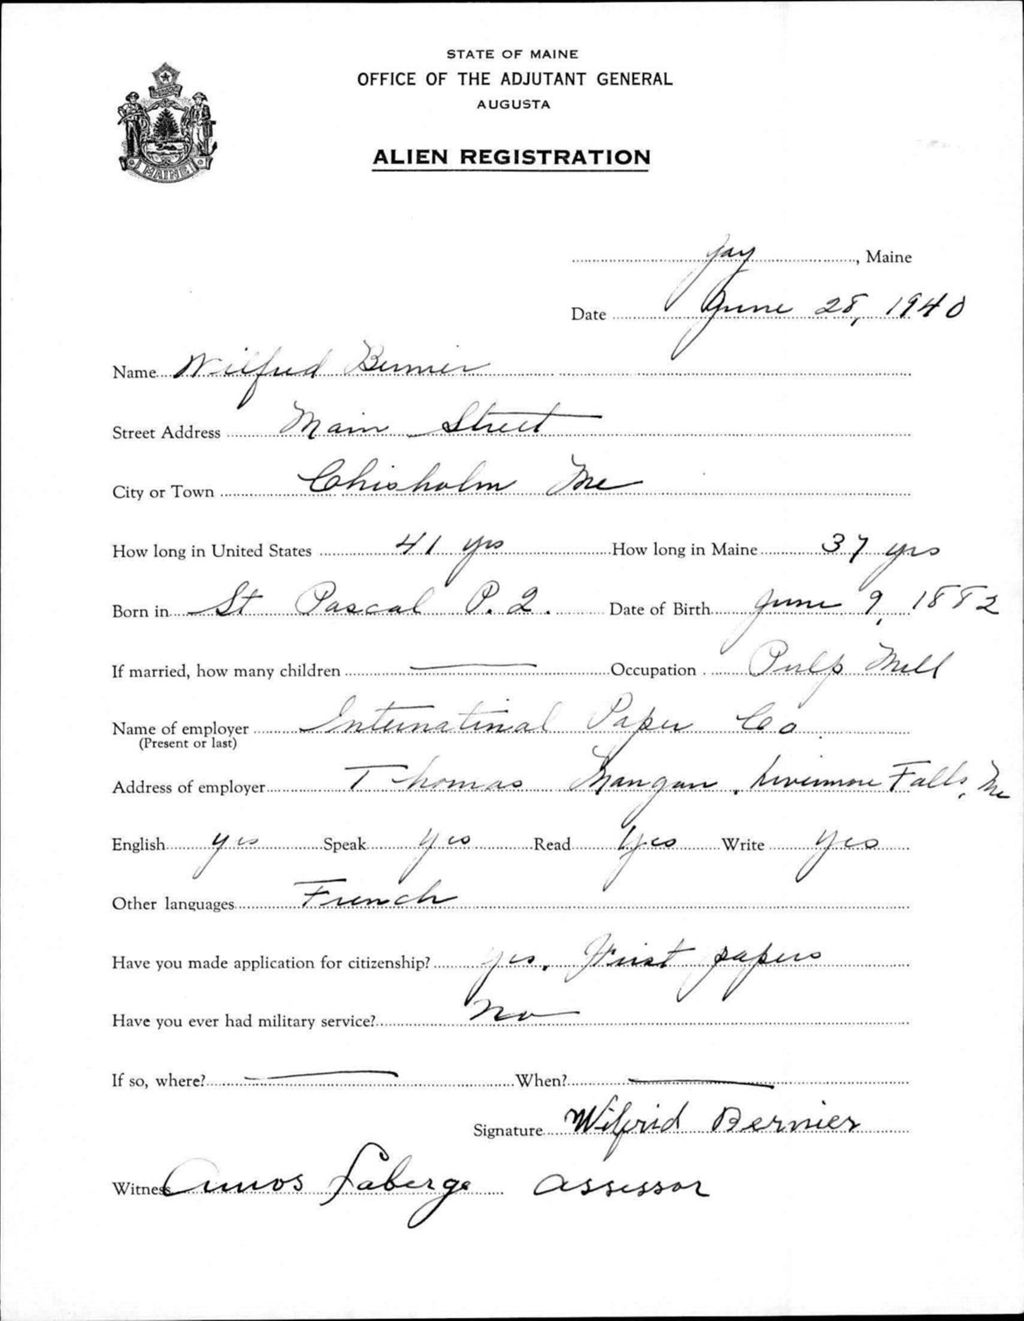 STATE OF MAINE
OFFICE OF THE ADJUTANT GENERAL
AUGUSTA
ALIEN REGISTRATION
MAINE
Jay, Maine
Date June 28, 1940
Name Wilfred Bernier
Street Address Main Street
City or Town Chisholm Me
How long in United States 41 yrs How long in Maine 37 yrs
Born in St Pascal P.Q. Date of Birth June 9, 1882
If married, how many children — Occupation Pulp Mill
Name of employer International Paper Co
(Present or last)
Address of employer Thomas Mangan, Livermore Falls, Me
English yes Speak yes Read Yes Write yes
Other languages French
Have you made application for citizenship? yes. First papers
Have you ever had military service? No
If so, where? — When? —
Signature Wilfrid Bernier
Witness Amos Laberge Assessor